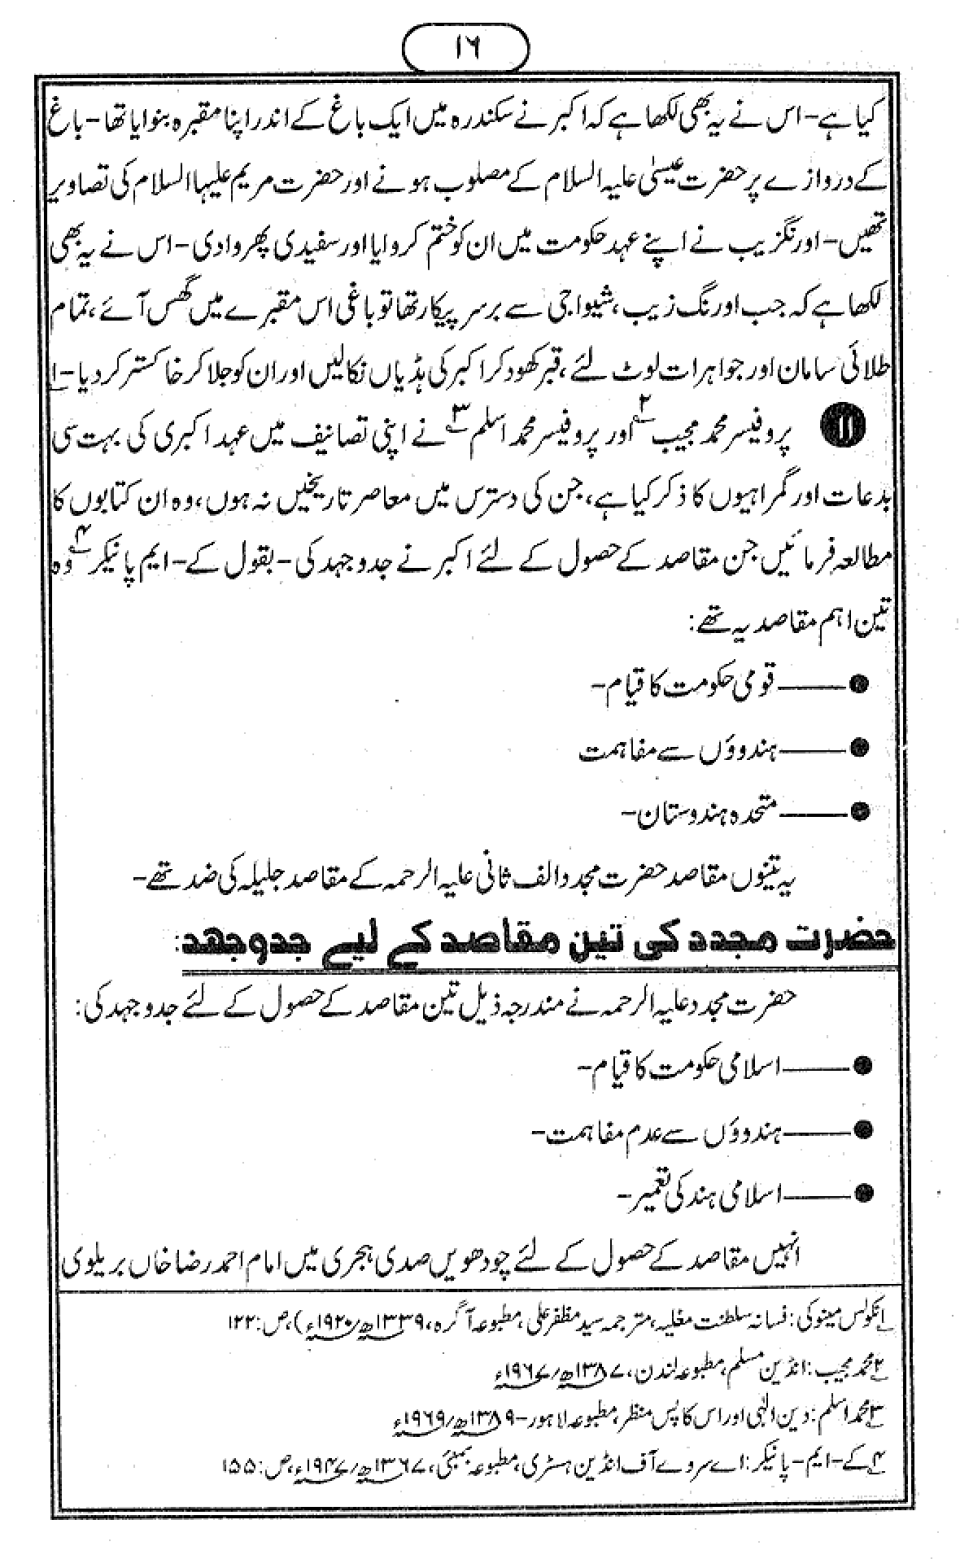 ۱۶
کیا ہے- اس نے یہ بھی لکھا ہے کہ اکبر نے سکندرہ میں ایک باغ کے اندر اپنا مقبرہ بنوایا تھا- باغ
کے دروازے پر حضرت عیسیٰ علیہ السلام کے مصلوب ہونے اور حضرت مریم علیہا السلام کی تصاویر
تھیں- اورنگزیب نے اپنے عہد حکومت میں ان کو ختم کروایا اور سفیدی پھروادی- اس نے یہ بھی
لکھا ہے کہ جب اورنگ زیب ، شیواجی سے برسر پیکار تھا تو باغی اس مقبرے میں گھس آئے ، تمام
طلائی سامان اور جواہرات لوٹ لئے ، قبر کھود کر اکبر کی ہڈیاں نکالیں اور ان کو جلا کر خاکستر کر دیا- ۱
⓫ پروفیسر محمد مجیب ۲ اور پروفیسر محمد اسلم ۳ نے اپنی تصانیف میں عہد اکبری کی بہت سی
بدعات اور گمراہیوں کا ذکر کیا ہے ، جن کی دسترس میں معاصر تاریخیں نہ ہوں ، وہ ان کتابوں کا
مطالعہ فرمائیں جن مقاصد کے حصول کے لئے اکبر نے جدوجہد کی- بقول کے- ایم پانیکر ۴ وہ
تین اہم مقاصد یہ تھے:
● —— قومی حکومت کا قیام-
● —— ہندوؤں سے مفاہمت
● —— متحدہ ہندوستان-
یہ تینوں مقاصد حضرت مجدد الف ثانی علیہ الرحمہ کے مقاصد جلیلہ کی ضد تھے-
حضرت مجدد کی تین مقاصد کے لیے جدوجھد:
حضرت مجدد علیہ الرحمہ نے مندرجہ ذیل تین مقاصد کے حصول کے لئے جدوجہد کی:
● —— اسلامی حکومت کا قیام-
● —— ہندوؤں سے عدم مفاہمت-
● —— اسلامی ہند کی تعمیر-
انہیں مقاصد کے حصول کے لئے چودھویں صدی ہجری میں امام احمد رضا خاں بریلوی
۱ نکولس مینوکی: فسانہ سلطنت مغلیہ ، مترجمہ سید مظفر علی ، مطبوعہ آگرہ ، ۱۳۳۹ھ/۱۹۲۰ء) ، ص: ۱۲۲
۲ محمد مجیب: انڈین مسلم ، مطبوعہ لندن ، ۱۳۸۷ھ/۱۹۶۷ء
۳ محمد اسلم: دین الٰہی اور اس کا پس منظر ، مطبوعہ لاہور- ۱۳۸۹ھ/۱۹۶۹ء
۴ کے- ایم- پانیکر: اے سروے آف انڈین ہسٹری ، مطبوعہ بمبئی ، ۱۳۶۷ھ/۱۹۴۷ء ، ص: ۱۵۵